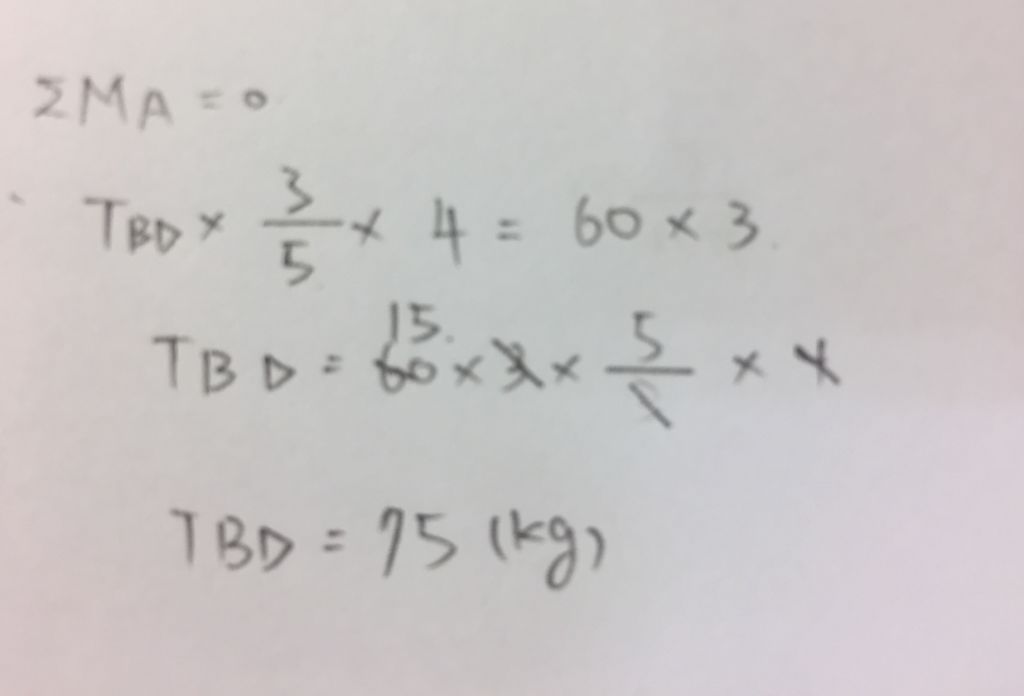 ΣMA = 0
TBD × 3/5 × 4 = 60 × 3
15.
TBD = 60 × 3 × 5/ × 4
TBD = 75 (kg)